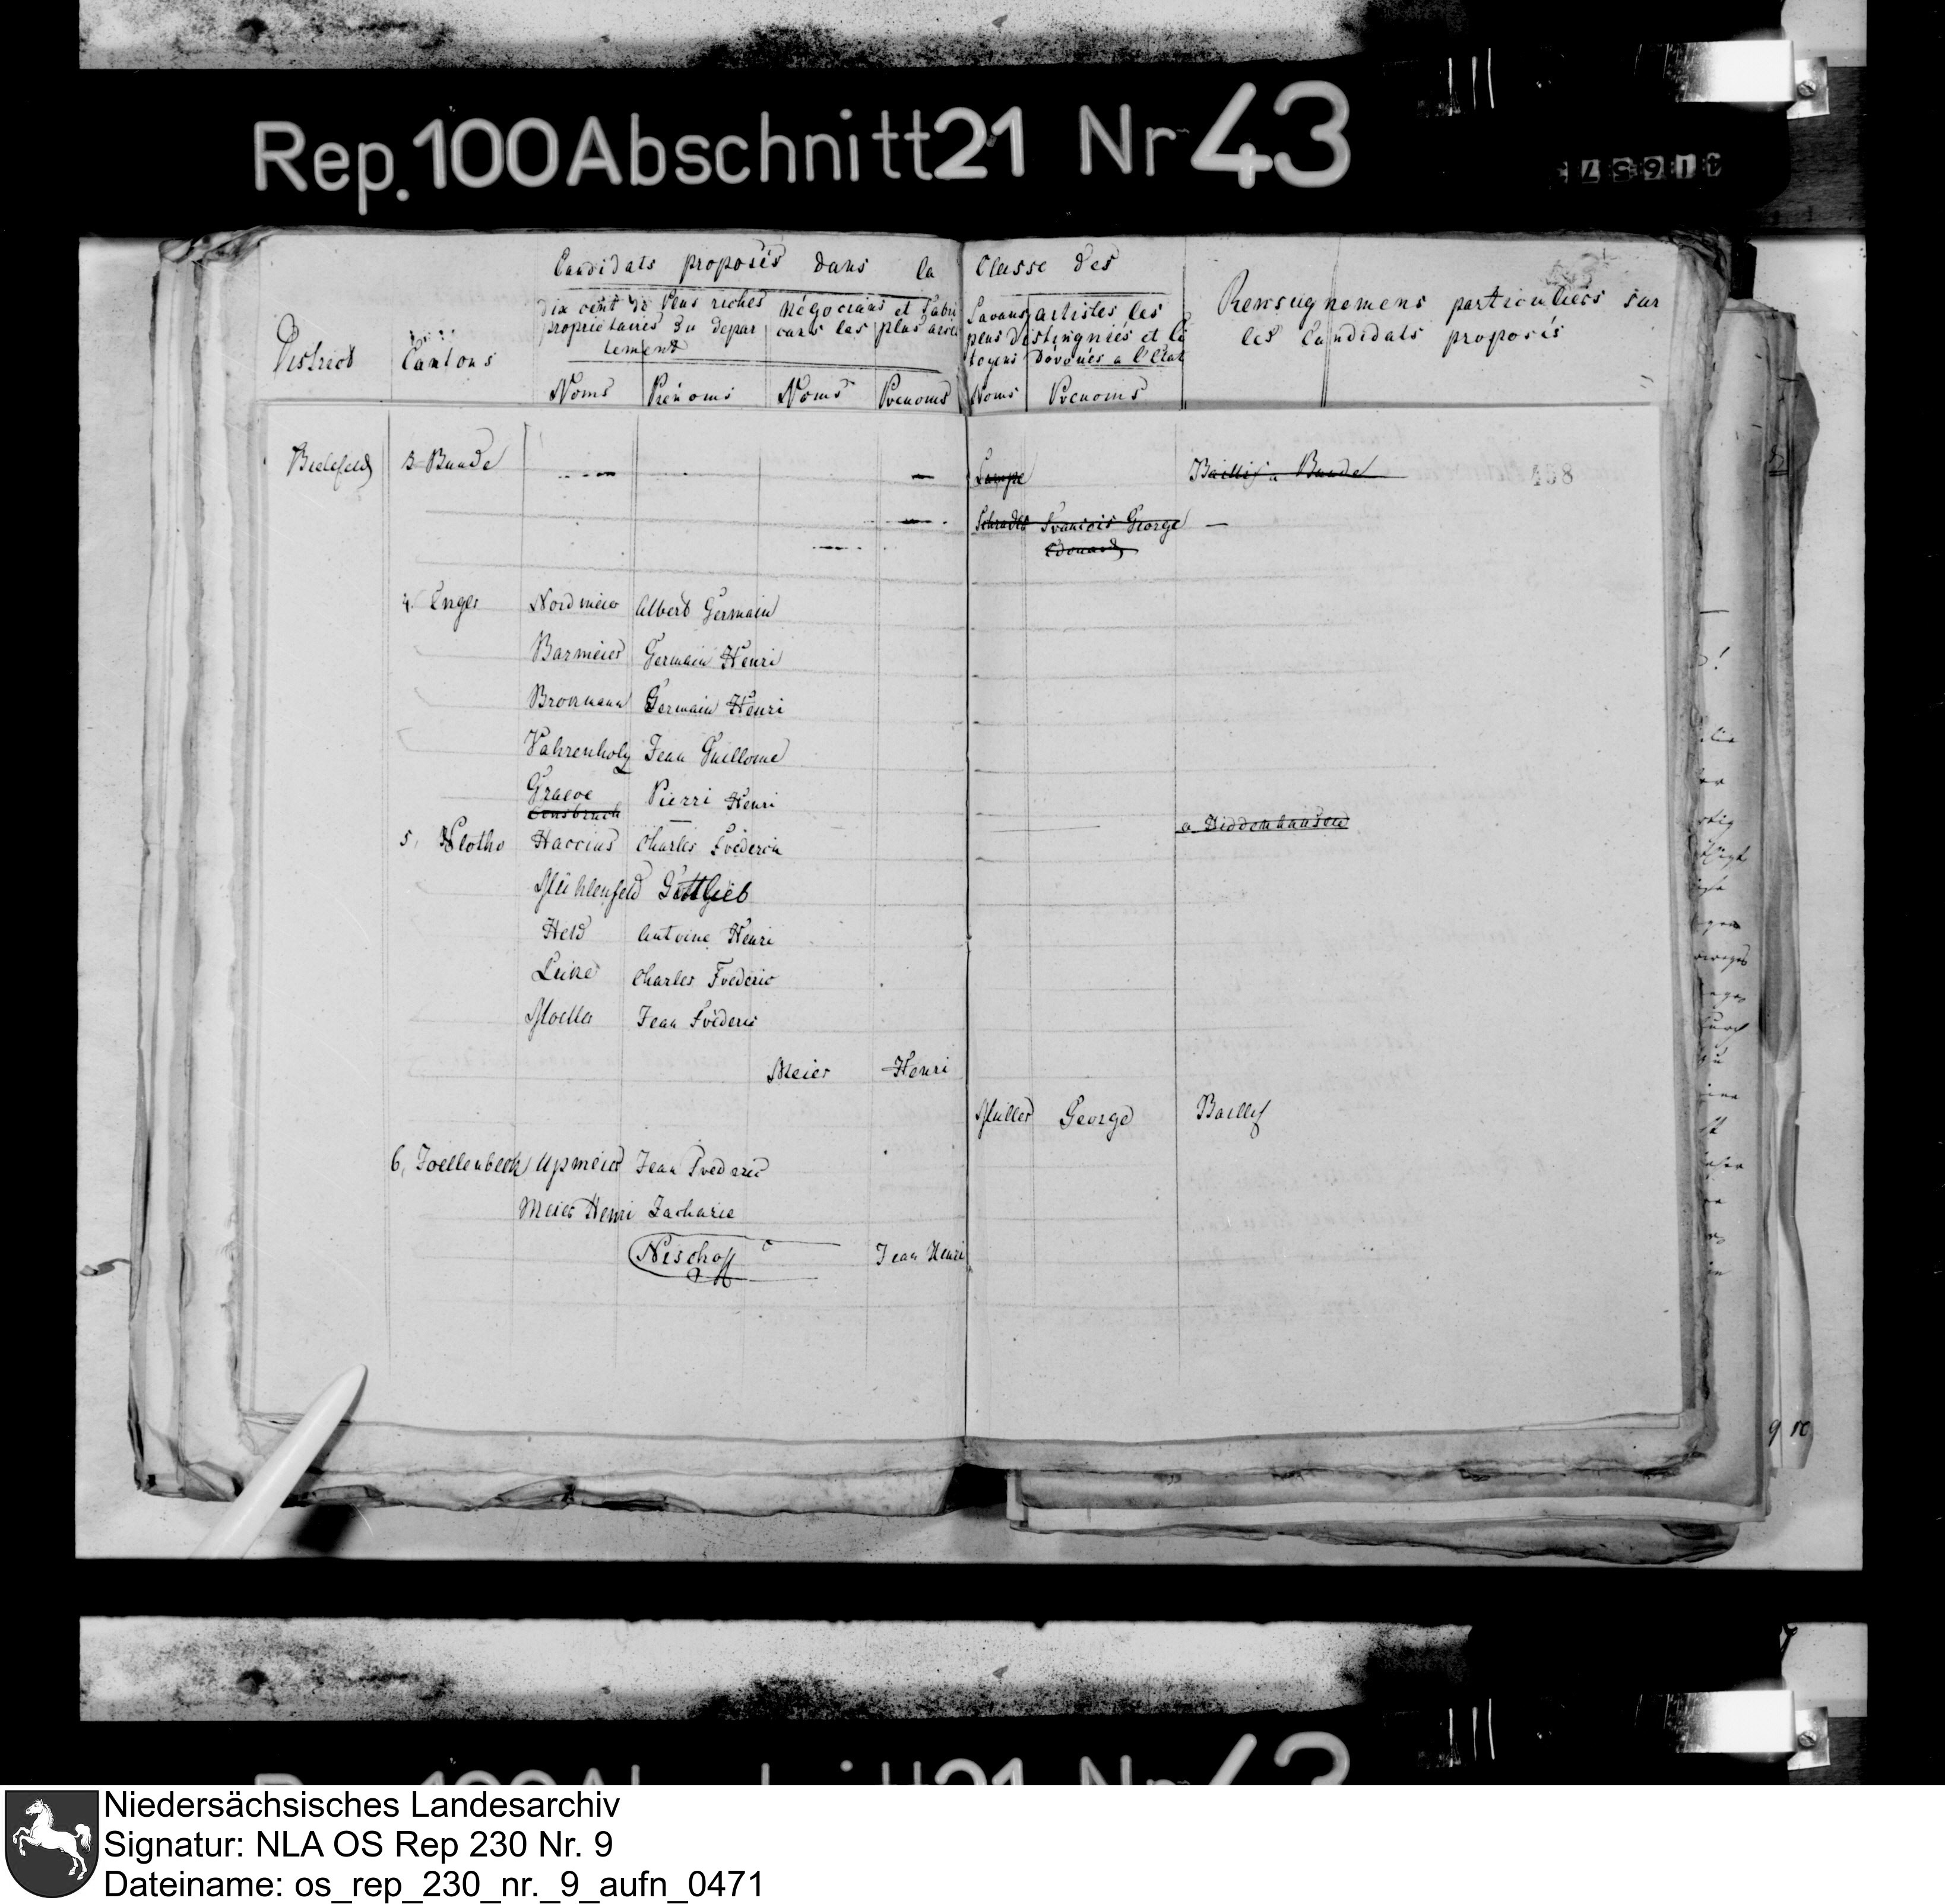 Rep. 100 Abschnitt 21 Nr 43
Candidats proposés dans la Classe des
District
Cantons
dix cent de plus riches
propriétaires du depar
tement
négocians et Fabri
cans les plus
Savans artistes les
plus distingniés et Ci
toyens Dévoués a l'état
Renseignemens particuliers sur
les Candidats proposés
Noms Prénoms Noms Prenoms Noms Prenoms
Bielefeld 3 Bunde Lampe Bailli a Bunde 458
Schrader Francois George —
Edouard
4. Enger Nordmeier Albert Germain
Barmeier Germain Henri
Germain Henri
Vahrenholz Jean Guillome
Graeve Pierri Henri
Consbruch — a Hiddenhausen
5. Vlotho Haccius Charles Fréderic
Mühlenfeld Gottlieb
Held Antoine Henri
Charles Frederic
Moeller Jean Fréderic
Meier Henri
Müller George Baillif
6, Joellenbeck Upmeier Jean Frederic
Meier Henri Zacharie
Nischoff Jean Henri
9 10
Niedersächsisches Landesarchiv
Signatur: NLA OS Rep 230 Nr. 9
Dateiname: os_rep_230_nr._9_aufn_0471